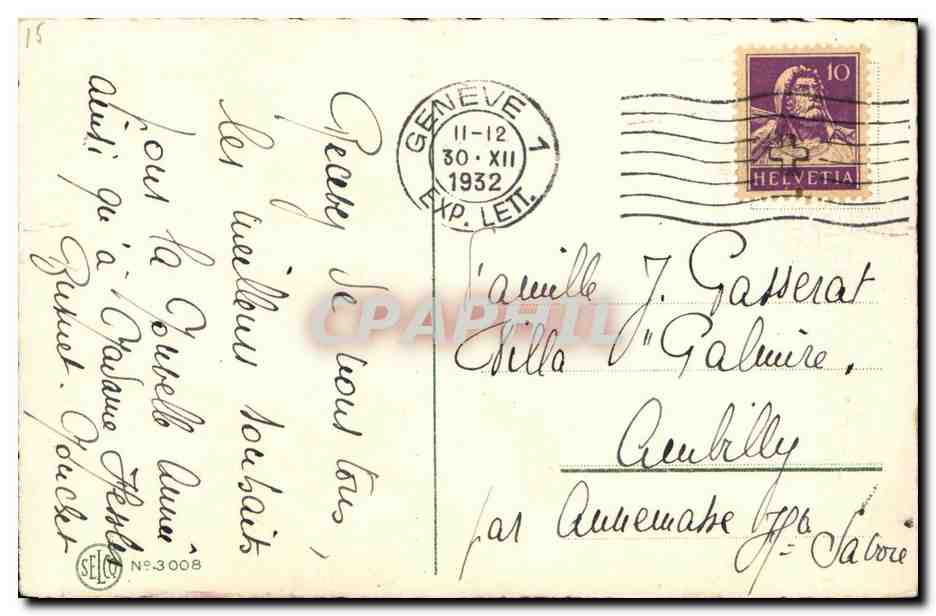 15
Recevez de nous tous,
les meilleurs souhaits
pour la Nouvelle Année
ainsi qu'à Madame Hessler
SELCO
No. 3008
GENÈVE 1
11-12
30·XII
1932
EXP. LETT.
10
HELVETIA
CPAPHIL
Famille J. Gasserat
Villa "Galmire.
Ambilly
par Annemasse Hte Savoie